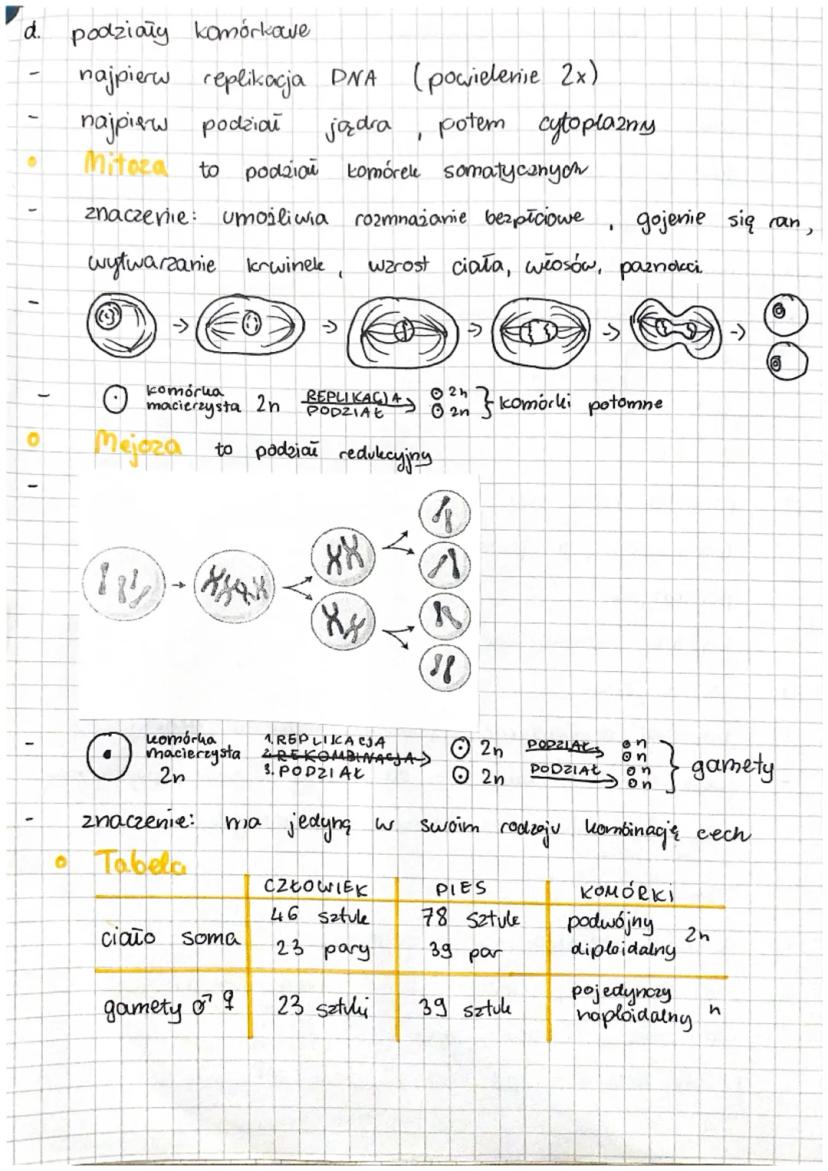 d. podziały komórkowe
- najpierw replikacja DNA (powielenie 2x)
- najpierw podział jądra, potem cytoplazmy
Mitoza to podział komórek somatycznych
- znaczenie: umożliwia rozmnażanie bezpłciowe, gojenie się ran,
wytwarzanie krwinek, wzrost ciała, włosów, paznokci.
komórka
macierzysta 2n REPLIKACJA PODZIAŁ 2n 2n } komórki potomne
Mejoza to podział redukcyjny
komórka
macierzysta
2n
1. REPLIKACJA
2. REKOMBINACJA
3. PODZIAŁ
2n PODZIAŁ n n
2n PODZIAŁ n n
} gamety
- znaczenie: ma jedyną w swoim rodzaju kombinację cech
Tabela
CZŁOWIEK PIES KOMÓRKI
ciało soma 46 sztuk 78 sztuk podwójny
23 pary 39 par diploidalny 2n
gamety ♂ ♀ 23 sztuki 39 sztuk pojedynczy
haploidalny n